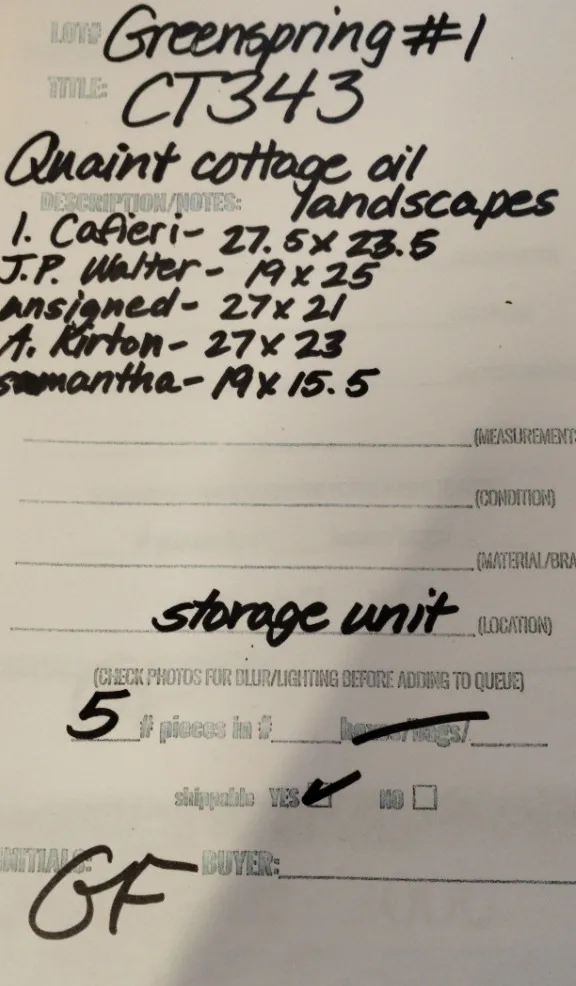 LOT# Greenspring #1
TITLE: CT343
Quaint cottage oil
landscapes
DESCRIPTION/NOTES:
I. Cafieri- 27.5 x 23.5
J.P. Walter- 19 x 25
unsigned- 27 x 21
A. Kirton- 27 x 23
samantha- 19 x 15.5
(MEASUREMENT
(CONDITION)
(MATERIAL/BRA
storage unit (LOCATION)
(CHECK PHOTOS FOR BLUR/LIGHTING BEFORE ADDING TO QUEUE)
5 # pieces in # boxes/bags/
shippable YES ✓ NO
INITIALS: GF BUYER: